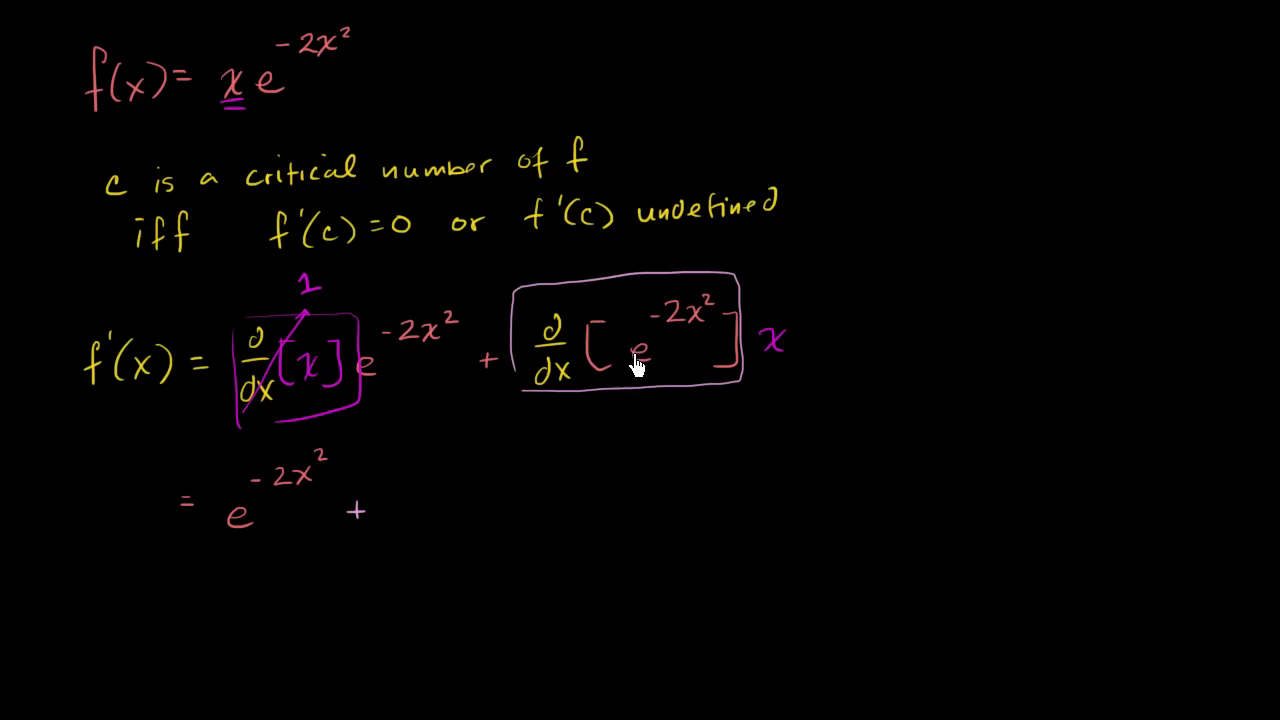 f(x) = x e^{-2x^2}
c is a critical number of f
iff f'(c) = 0 or f'(c) undefined
1
f'(x) = d/dx [x] e^{-2x^2} + d/dx [e^{-2x^2}] x
= e^{-2x^2} +